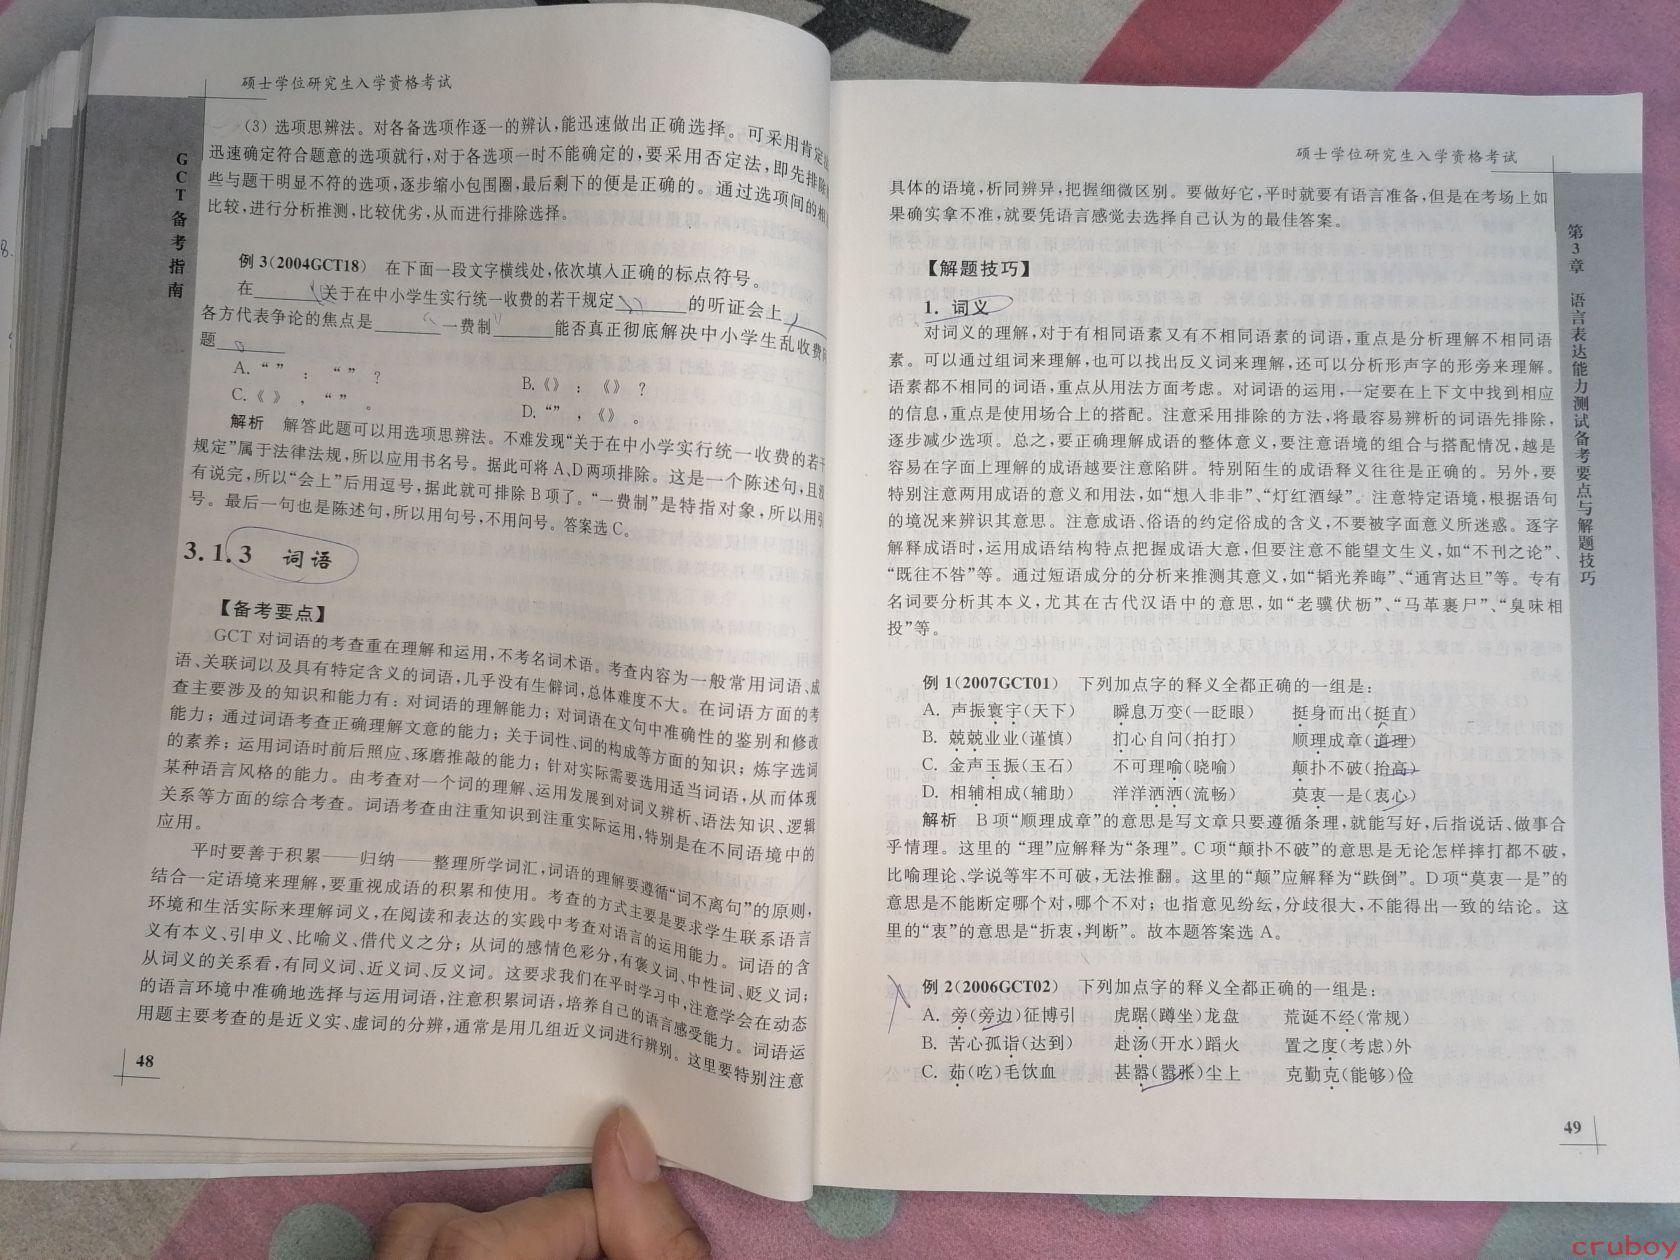 硕士学位研究生入学资格考试
GCT备考指南
(3) 选项思辨法。对各备选项作逐一的辨认,能迅速做出正确选择。可采用肯定
迅速确定符合题意的选项就行,对于各选项一时不能确定的,要采用否定法,即先排除
些与题干明显不符的选项,逐步缩小包围圈,最后剩下的便是正确的。通过选项间的相
比较,进行分析推测,比较优劣,从而进行排除选择。
例 3(2004GCT18) 在下面一段文字横线处,依次填入正确的标点符号。
在______关于在中小学生实行统一收费的若干规定______的听证会上____
各方代表争论的焦点是______一费制______能否真正彻底解决中小学生乱收费
题______
A.“ ” : “ ” ?
B.《》 : 《》 ?
C.《 》 , “ ” 。
D.“” ,《》 。
解析 解答此题可以用选项思辨法。不难发现“关于在中小学实行统一收费的若干
规定”属于法律法规,所以应用书名号。据此可将 A、D 两项排除。这是一个陈述句,且
有说完,所以“会上”后用逗号,据此就可排除 B 项了。“一费制”是特指对象,所以用
号。最后一句也是陈述句,所以用句号,不用问号。答案选 C。
3.1.3 词语
【备考要点】
GCT 对词语的考查重在理解和运用,不考名词术语。考查内容为一般常用词语、成
语、关联词以及具有特定含义的词语,几乎没有生僻词,总体难度不大。在词语方面的考
查主要涉及的知识和能力有:对词语的理解能力;对词语在文句中准确性的鉴别和修改
能力;通过词语考查正确理解文意的能力;关于词性、词的构成等方面的知识;炼字选词
的素养;运用词语时前后照应、琢磨推敲的能力;针对实际需要选用适当词语,从而体现
某种语言风格的能力。由考查对一个词的理解、运用发展到对词义辨析、语法知识、逻辑
关系等方面的综合考查。词语考查由注重知识到注重实际运用,特别是在不同语境中的
应用。
平时要善于积累——归纳——整理所学词汇,词语的理解要遵循“词不离句”的原则,
结合一定语境来理解,要重视成语的积累和使用。考查的方式主要是要求学生联系语言
环境和生活实际来理解词义,在阅读和表达的实践中考查对语言的运用能力。词语的含
义有本义、引申义、比喻义、借代义之分;从词的感情色彩分,有褒义词、中性词、贬义词;
从词义的关系看,有同义词、近义词、反义词。这要求我们在平时学习中,注意学会在动态
的语言环境中准确地选择与运用词语,注意积累词语,培养自己的语言感受能力。词语运
用题主要考查的是近义实、虚词的分辨,通常是用几组近义词进行辨别。这里要特别注意
48
硕士学位研究生入学资格考试
第3章 语言表达能力测试备考要点与解题技巧
具体的语境,析同辨异,把握细微区别。要做好它,平时就要有语言准备,但是在考场上如
果确实拿不准,就要凭语言感觉去选择自己认为的最佳答案。
【解题技巧】
1. 词义
对词义的理解,对于有相同语素又有不相同语素的词语,重点是分析理解不相同语
素。可以通过组词来理解,也可以找出反义词来理解,还可以分析形声字的形旁来理解。
语素都不相同的词语,重点从用法方面考虑。对词语的运用,一定要在上下文中找到相应
的信息,重点是使用场合上的搭配。注意采用排除的方法,将最容易辨析的词语先排除,
逐步减少选项。总之,要正确理解成语的整体意义,要注意语境的组合与搭配情况,越是
容易在字面上理解的成语越要注意陷阱。特别陌生的成语释义往往是正确的。另外,要
特别注意两用成语的意义和用法,如“想入非非”、“灯红酒绿”。注意特定语境,根据语句
的境况来辨识其意思。注意成语、俗语的约定俗成的含义,不要被字面意义所迷惑。逐字
解释成语时,运用成语结构特点把握成语大意,但要注意不能望文生义,如“不刊之论”、
“既往不咎”等。通过短语成分的分析来推测其意义,如“韬光养晦”、“通宵达旦”等。专有
名词要分析其本义,尤其在古代汉语中的意思,如“老骥伏枥”、“马革裹尸”、“臭味相
投”等。
例 1(2007GCT01) 下列加点字的释义全都正确的一组是:
A. 声振寰宇(天下) 瞬息万变(一眨眼) 挺身而出(挺直)
B. 兢兢业业(谨慎) 扪心自问(拍打) 顺理成章(道理)
C. 金声玉振(玉石) 不可理喻(晓喻) 颠扑不破(抬高)
D. 相辅相成(辅助) 洋洋洒洒(流畅) 莫衷一是(衷心)
解析 B 项“顺理成章”的意思是写文章只要遵循条理,就能写好,后指说话、做事合
乎情理。这里的 “理”应解释为“条理”。C 项“颠扑不破”的意思是无论怎样摔打都不破,
比喻理论、学说等牢不可破,无法推翻。这里的“颠”应解释为“跌倒”。D 项“莫衷一是”的
意思是不能断定哪个对,哪个不对;也指意见纷纭,分歧很大,不能得出一致的结论。这
里的“衷”的意思是“折衷,判断”。故本题答案选 A。
例 2(2006GCT02) 下列加点字的释义全都正确的一组是:
A. 旁(旁边)征博引 虎踞(蹲坐)龙盘 荒诞不经(常规)
B. 苦心孤诣(达到) 赴汤(开水)蹈火 置之度(考虑)外
C. 茹(吃)毛饮血 甚嚣(嚣张)尘上 克勤克(能够)俭
49
cruboy